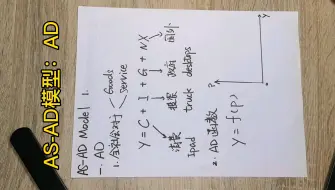 AS-AD模型：AD
AS-AD Model 1.
一. AD
1. 全社会对 Goods
Service
Y = C + I + G + NX
消费 投资 政府 国外
Ipad truck desktops
2. AD函数
Y = f(P)
P
Y